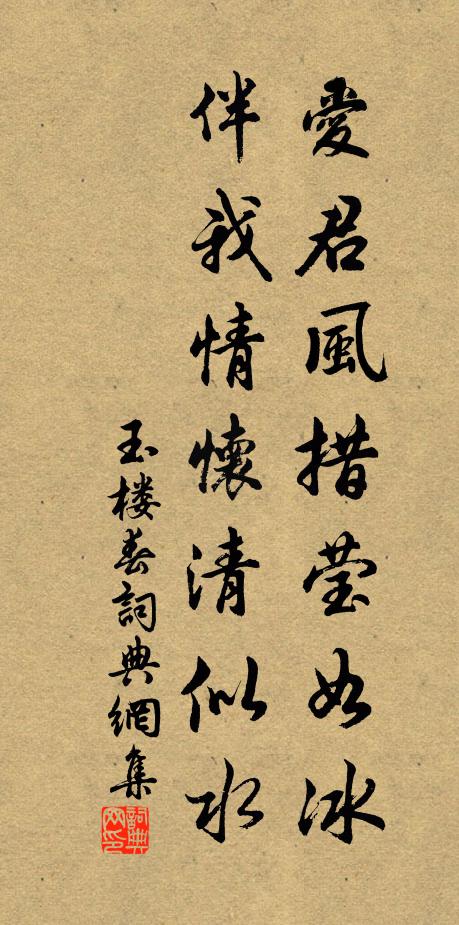 愛君風措莹如冰
伴我情懷清似水
玉楼春詞典網集
詞典网印